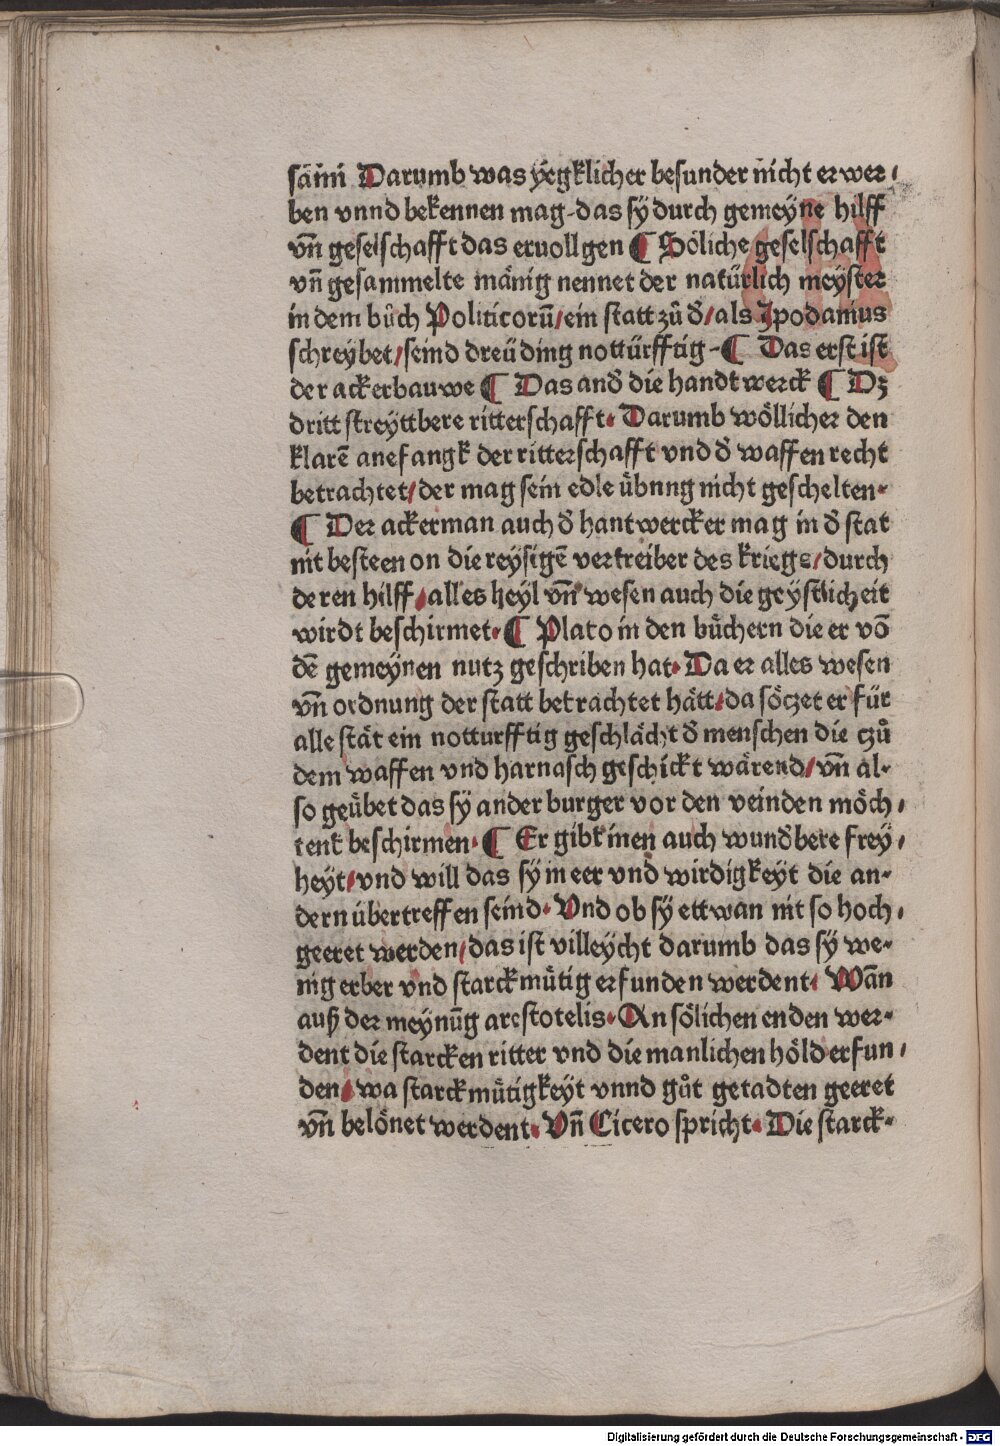 sam̄ Darumb was yegklicher besunder nicht erwer⸗
ben vnnd bekennen mag⸗das sÿ durch gemeÿne hilff
vn̄ geselschafft das eruollgen ¶ Söliche geselschafft
vn̄ gesammelte mänig nennet der natürlich meÿster
in dem bůch Politicorū/ein statt zů d̕/als Ipodamus
schreÿbet/seind dreü ding nottürfftig⸗¶ Das erst ist
der ackerbauwe ¶ Das and̕ die handtwerck ¶ Dz
dritt streÿttbere ritterschafft. Darumb wöllicher den
klarē anefangk der ritterschafft vnd d̕ waffen recht
betrachtet/der mag sein edle übnng nicht geschelten.
¶ Der ackerman auch d̕ hantwercker mag in d̕ stat
nit besteen on die reÿsigē vertreiber des kriegs/durch
deren hilff/alles heÿl vn̄ wesen auch die geÿstlicheit
wirdt beschirmet. ¶ Plato in den büchern die er vō
dē gemeÿnen nutz geschriben hat. Da er alles wesen
vn̄ ordnung der statt betrachtet hätt/da söczet er für
alle stät ein notturfftig geschlächt d̕ menschen die czů
dem waffen vnd harnasch geschickt wärend/vn̄ al⸗
so geübet das sÿ ander burger vor den veinden möch⸗
tent beschirmen. ¶ Er gibt inen auch wund̕bere freÿ⸗
heÿt/vnd will das sÿ in eer vnd wirdigkeÿt die an⸗
dern übertreffen seind. Vnd ob sÿ ettwan nit so hoch⸗
geeret werden/das ist villeÿcht darumb das sÿ we⸗
nig erber vnd starckmütig erfunden werdent. Wan̄
auß der meÿnūg arestotelis. An sölichen enden wer⸗
dent die starcken ritter vnd die manlichen höld erfun⸗
den/wa starckmütigkeÿt vnnd gůt getadten geeret
vn̄ belönet werdent. Vn̄ Cicero spricht. Die starck⸗
Digitalisierung gefördert durch die Deutsche Forschungsgemeinschaft - DFG